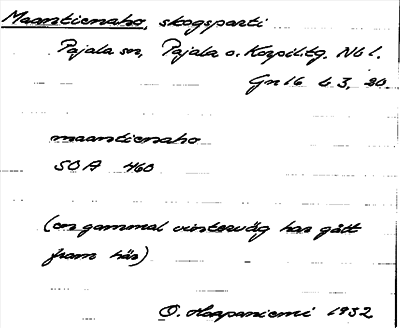 Maantienaho, skogsparti
Pajala sn, Pajala o. Korpil. tg. Nb l.
Gn 16 b 3, 20.
maantienaho
SOA 460
(en gammal vinterväg har gått
fram här)
O. Haapaniemi 1932